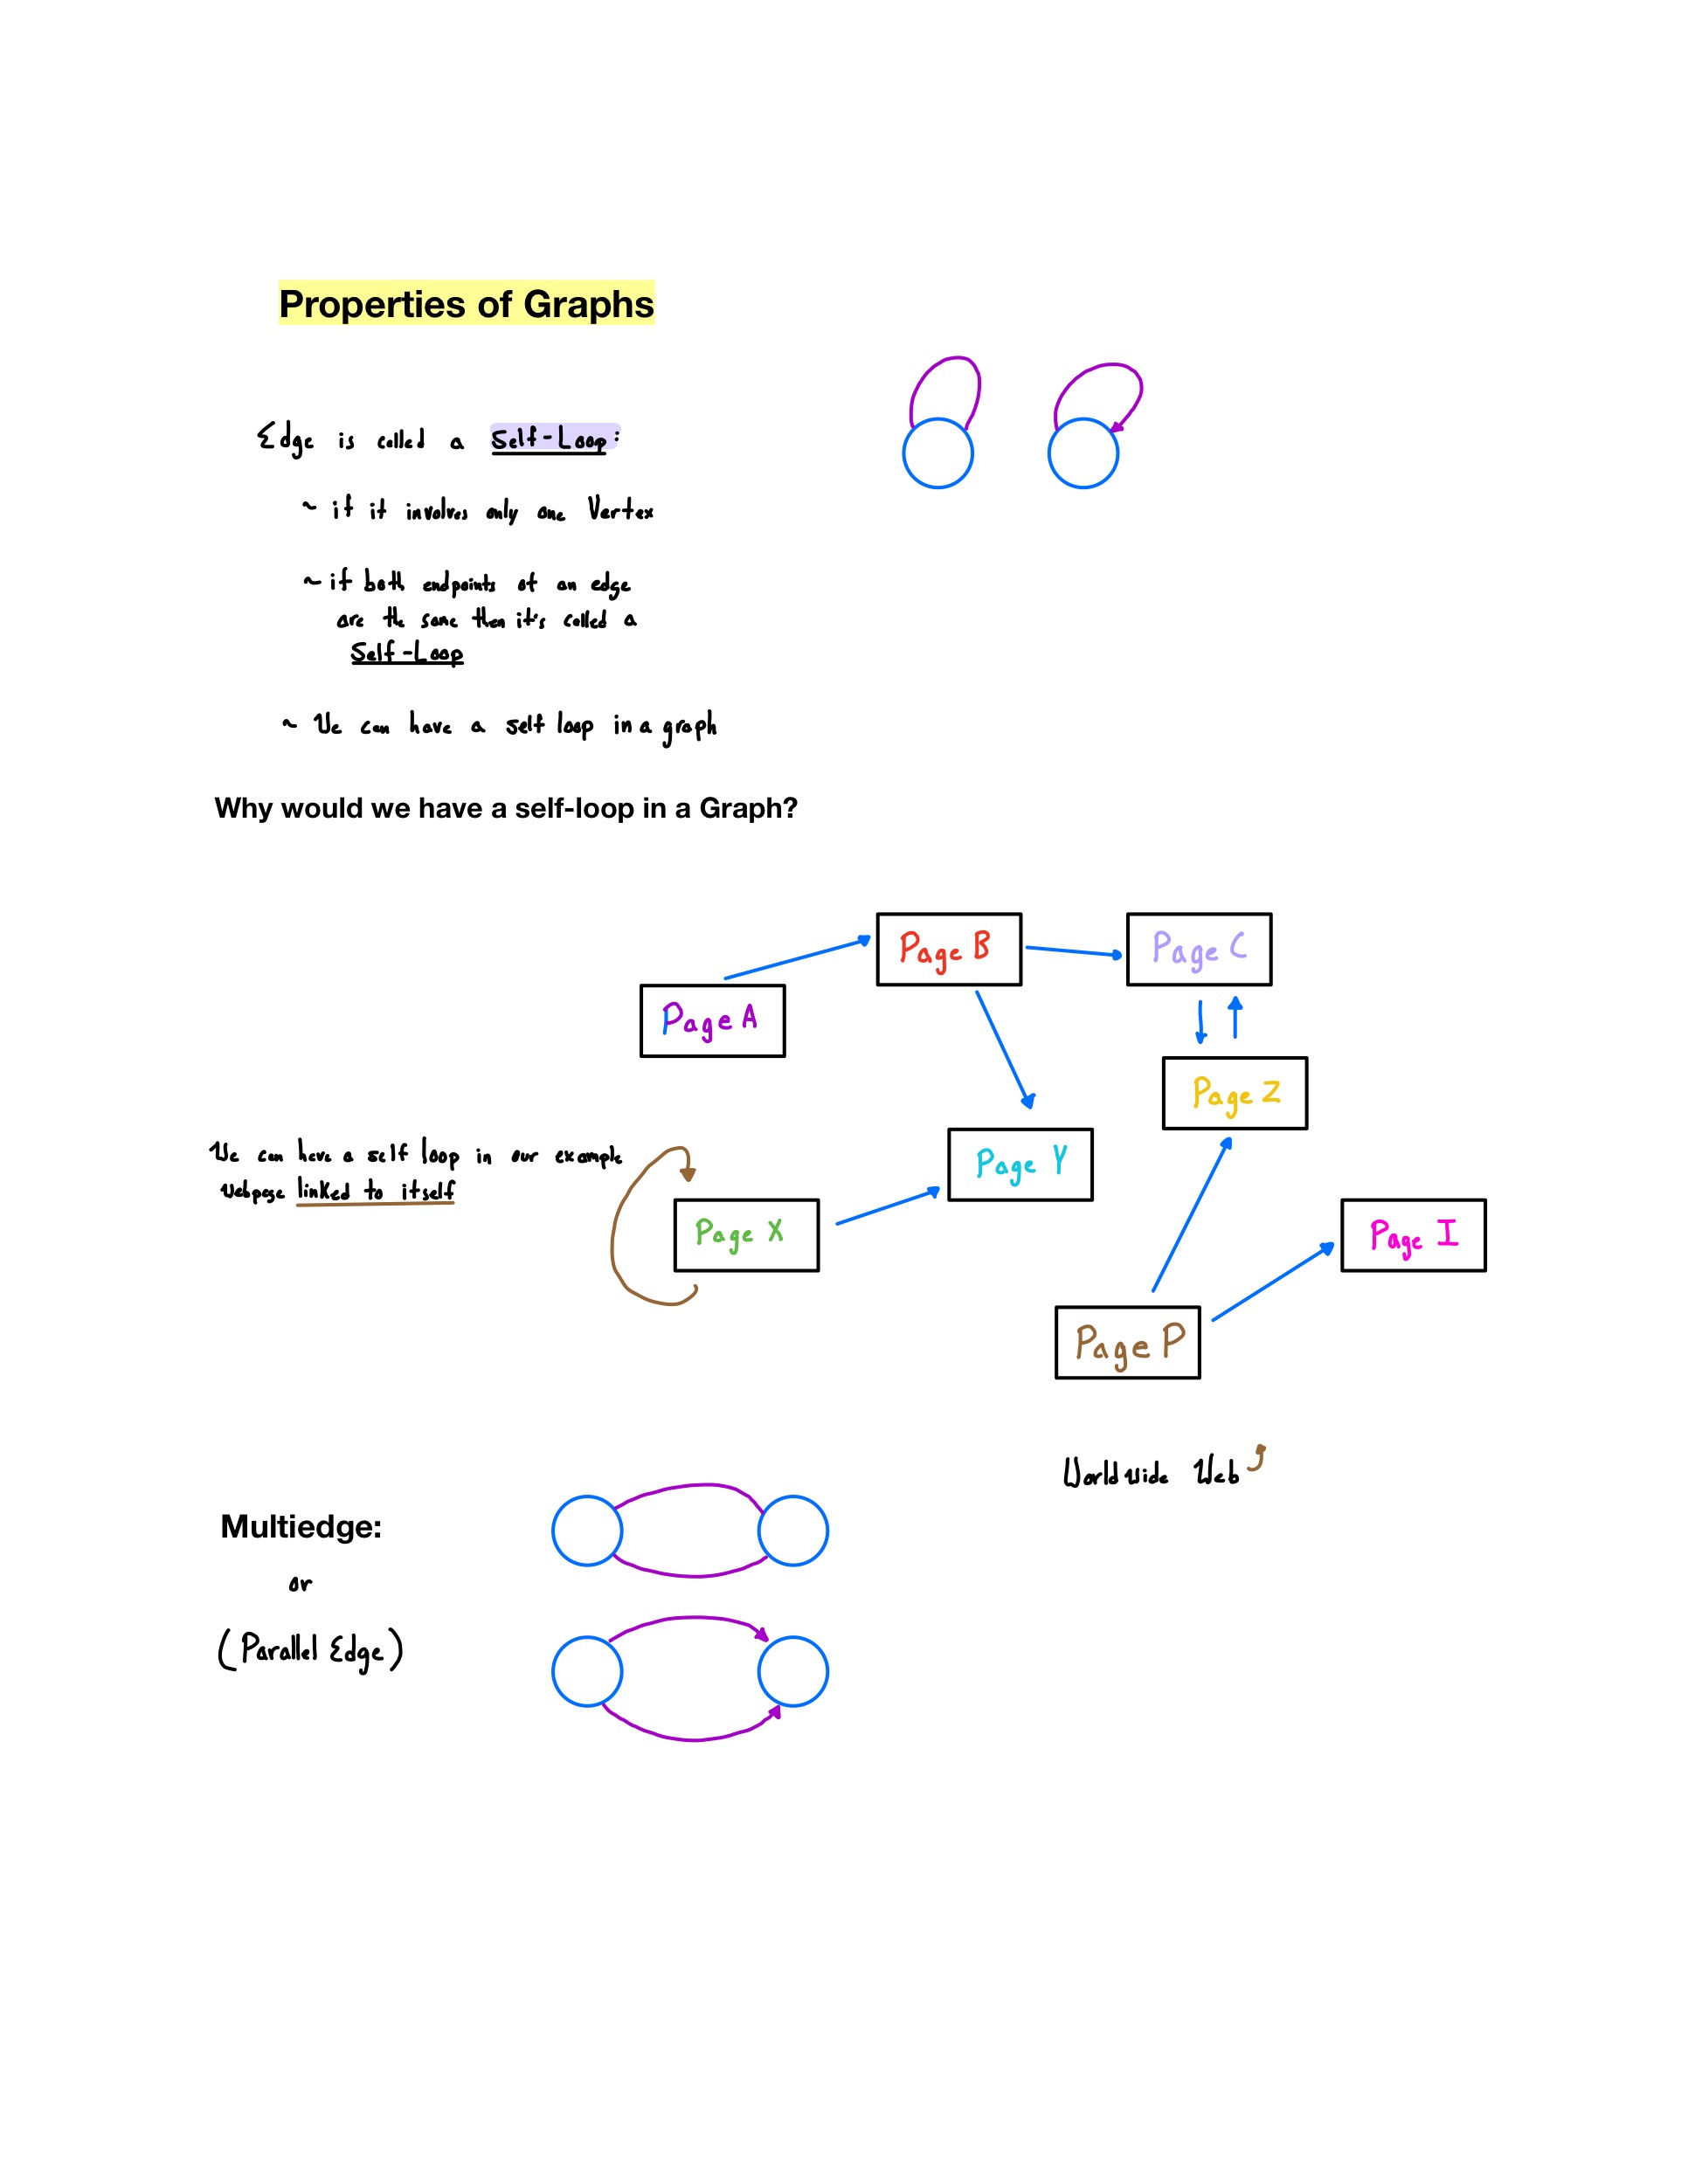 Properties of Graphs
Edge is called a Self-Loop:
~ if it involves only one Vertex
~ if both endpoints of an edge
are the same then it's called a
Self-Loop
~ We can have a self loop in a graph
Why would we have a self-loop in a Graph?
Page B
Page C
Page A
Page Z
We can have a self loop in our example
Webpage linked to itself
Page Y
Page X
Page I
Page P
World Wide Web
Multiedge:
or
(Parallel Edge)